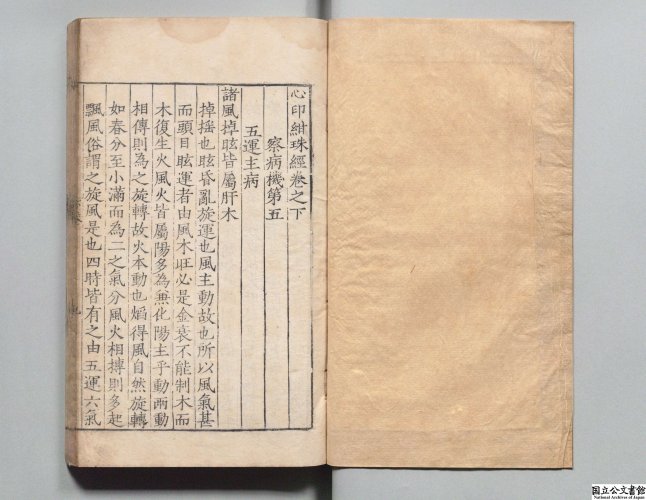 心印紺珠經卷之下
察病機第五
五運主病
諸風掉眩皆屬肝木
掉搖也眩昏亂旋運也風主動故也所以風氣甚
而頭目眩運者由風木旺必是金衰不能制木而
木復生火風火皆屬陽多為兼化陽主乎動兩動
相傳則為之旋轉故火本動也熖得風自然旋轉
如春分至小滿而為二之氣分風火相摶則多起
飄風俗謂之旋風是也四時皆有之由五運六氣
国立公文書館
National Archives of Japan